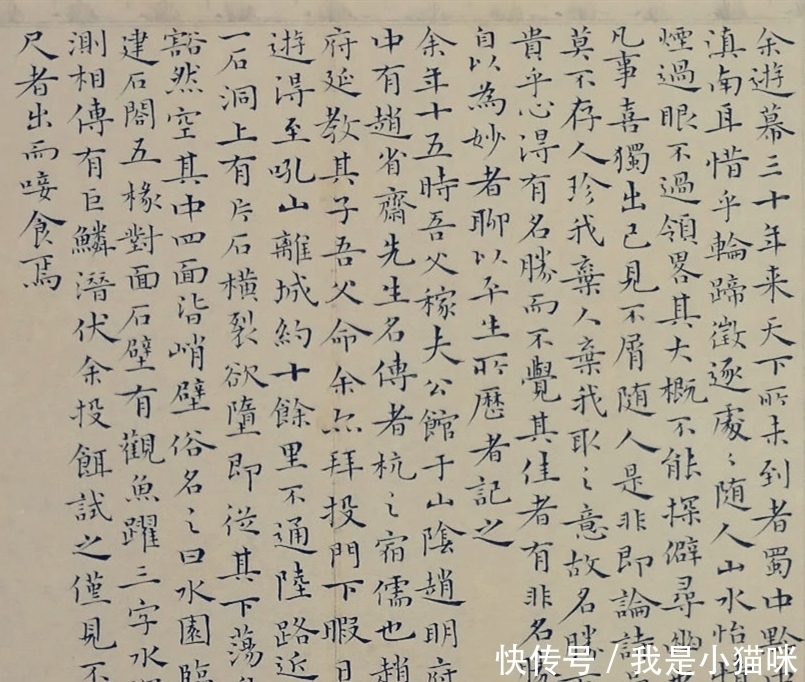 余遊幕三十年来天下所未到者蜀中黔
滇南耳惜乎輪蹄徵逐處〻随人山水怡
煙過眼不過領畧其大概不能探僻尋幽
凡事喜獨出己見不屑随人是非即論詩
莫不存人珍我棄人棄我取〻意故名勝
貴乎心得有名勝而不覺其佳者有非名
自以為妙者聊以平生所歷者記之
余年十五時吾父稼夫公館于山陰趙明府
中有趙省齋先生名傳者杭〻宿儒也趙
府延教其子吾父命余亦拜投門下暇日
遊得至吼山離城約十餘里不通陸路近
一石洞上有片石橫裂欲墮即從其下蕩
豁然空其中四面皆峭壁俗名〻曰水園臨
建石閣五椽對面石壁有觀魚躍三字水
測相傳有巨鱗潛伏余投餌試之僅見不
尺者出而唼食焉
快传号 / 我是小猫咪